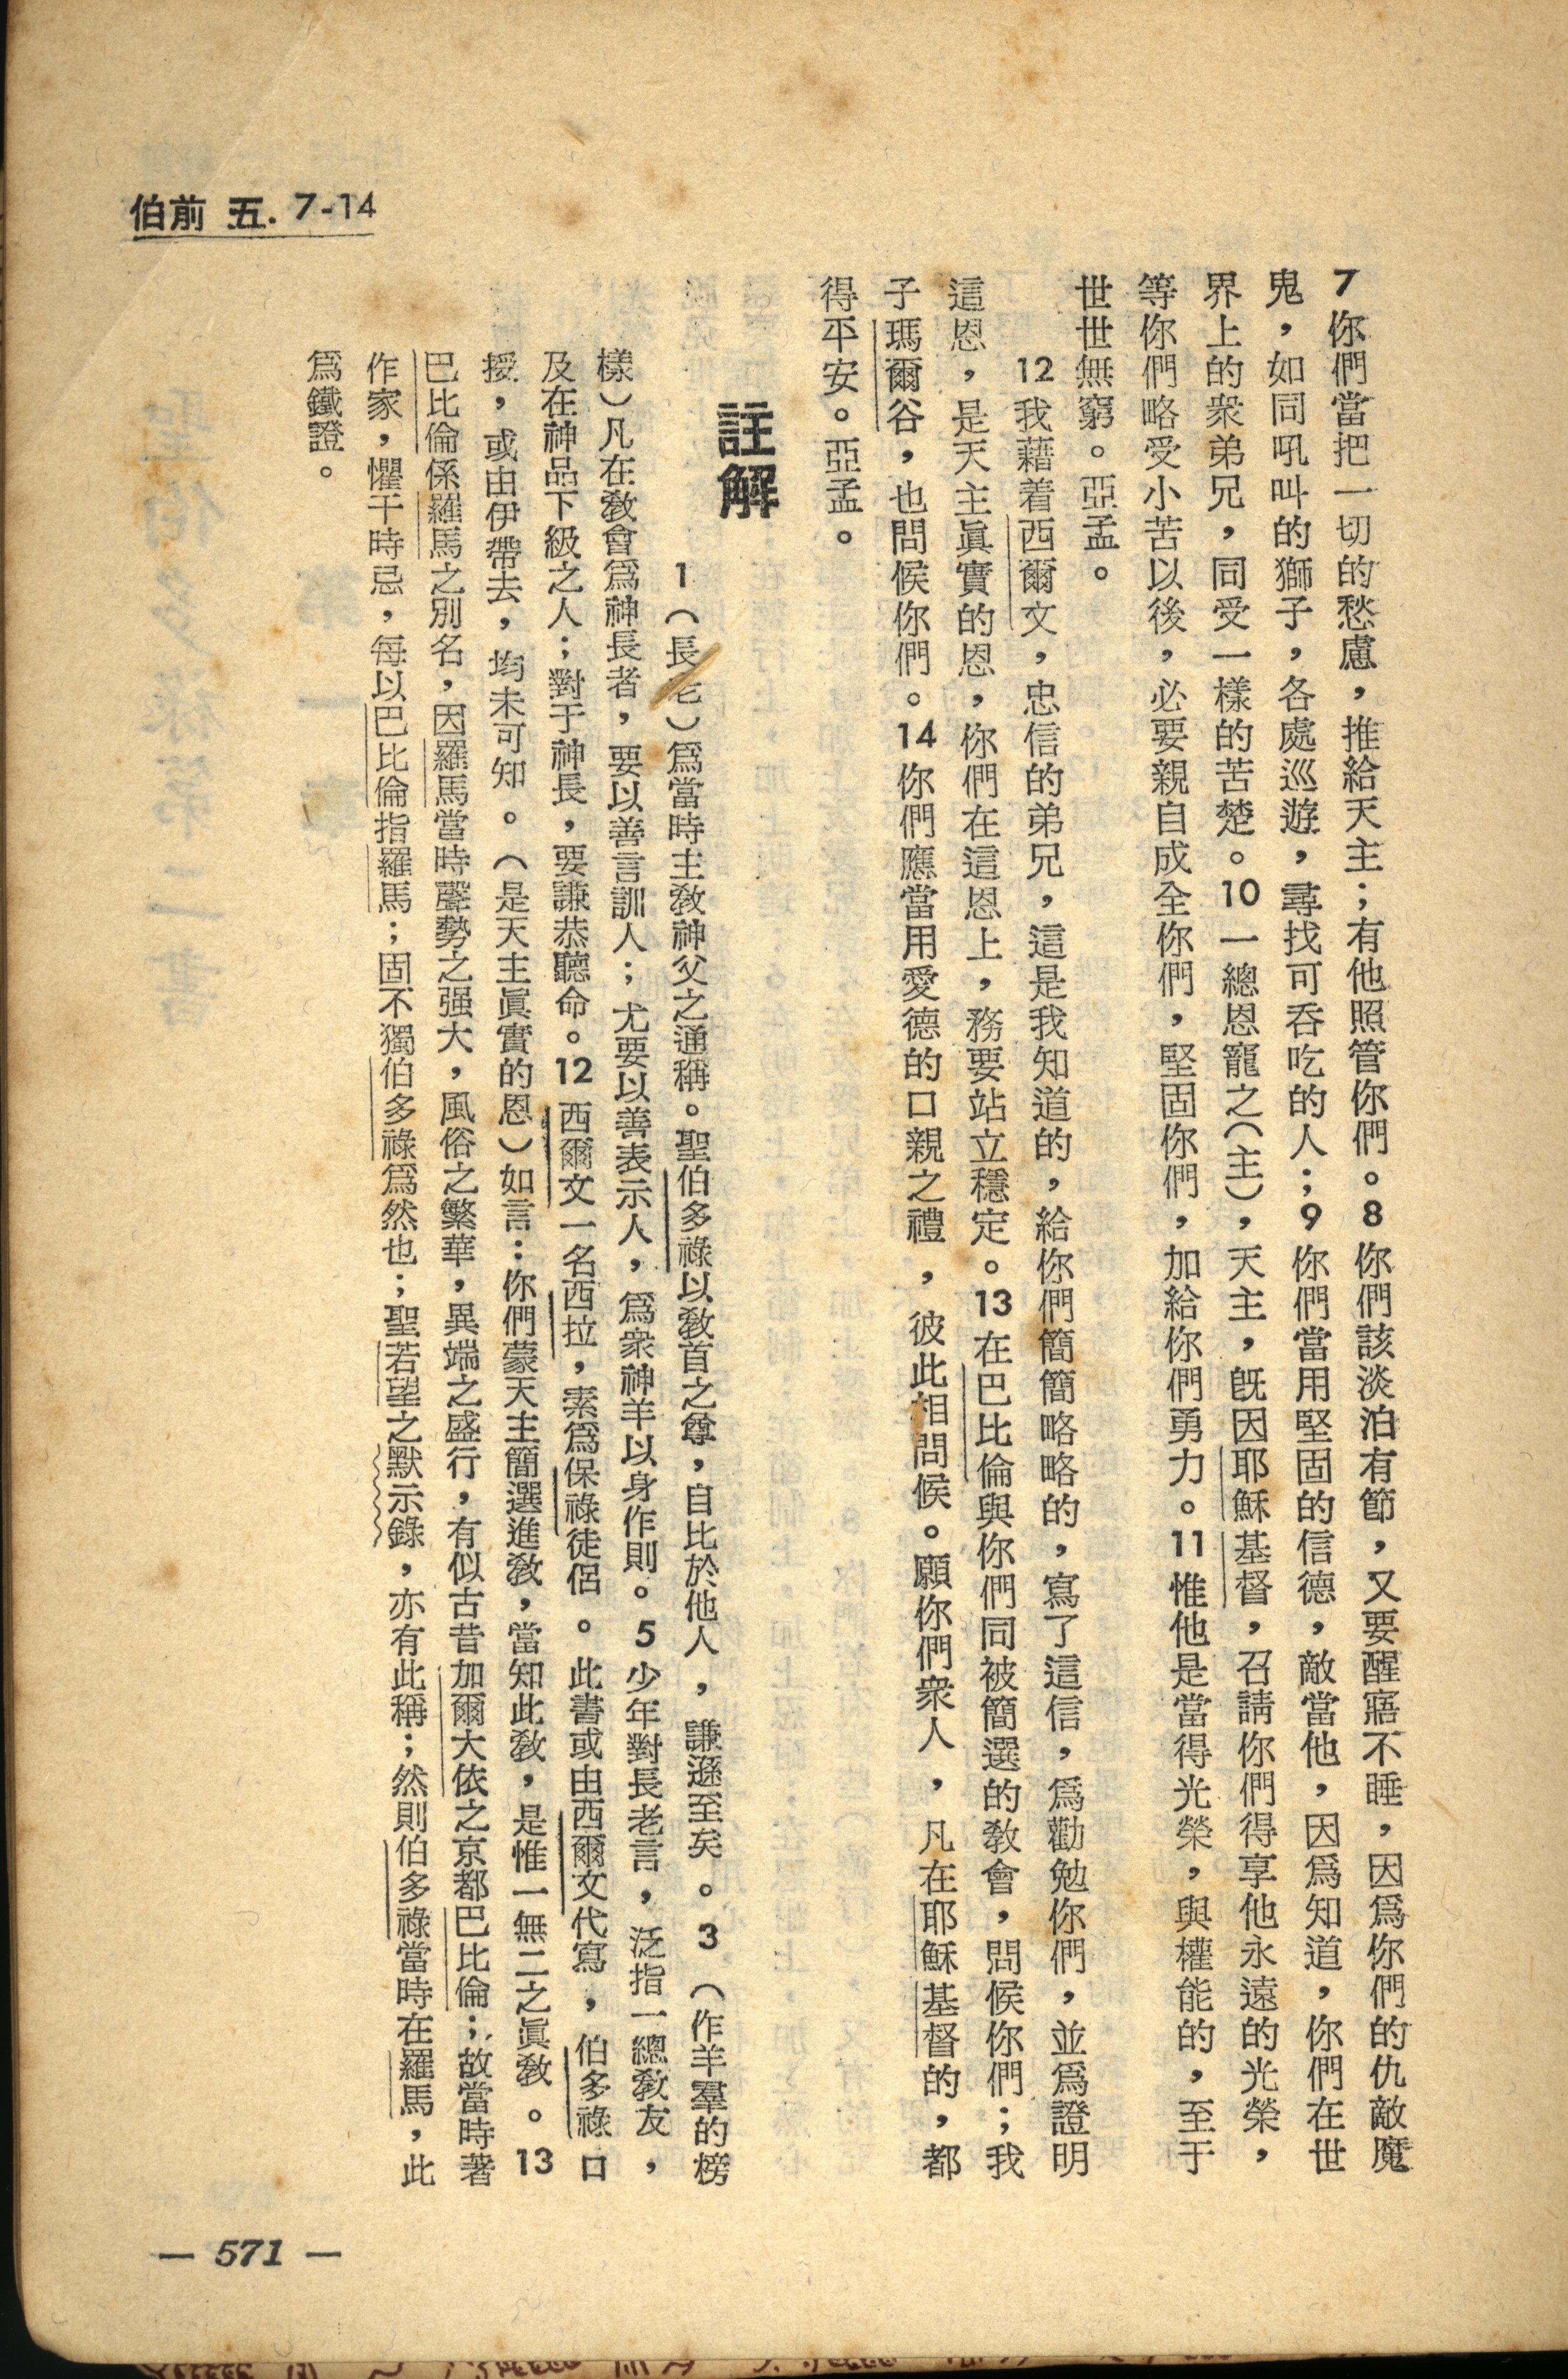 伯前 五. 7-14
7 你們當把一切的愁慮，推給天主；有他照管你們。8 你們該淡泊有節，又要醒寤不睡，因爲你們的仇敵魔
鬼，如同吼叫的獅子，各處巡遊，尋找可吞吃的人；9 你們當用堅固的信德，敵當他，因爲知道，你們在世
界上的衆弟兄，同受一樣的苦楚。10 一總恩寵之（主），天主，旣因耶穌基督，召請你們得享他永遠的光榮，
等你們略受小苦以後，必要親自成全你們，堅固你們，加給你們勇力。11 惟他是當得光榮，與權能的，至于
世世無窮。亞孟。
12 我藉着西爾文，忠信的弟兄，這是我知道的，給你們簡簡略略的，寫了這信，爲勸勉你們，並爲證明
這恩，是天主眞實的恩，你們在這恩上，務要站立穩定。13 在巴比倫與你們同被簡選的敎會，問候你們；我
子瑪爾谷，也問候你們。14 你們應當用愛德的口親之禮，彼此相問候。願你們衆人，凡在耶穌基督的，都
得平安。亞孟。
註解
1（長老）爲當時主敎神父之通稱。聖伯多祿以敎首之尊，自比於他人，謙遜至矣。3（作羊羣的榜
樣）凡在敎會爲神長者，要以善言訓人；尤要以善表示人，爲衆神羊以身作則。5 少年對長老言，泛指一總敎友，
及在神品下級之人；對于神長，要謙恭聽命。12 西爾文一名西拉，素爲保祿徒侶。此書或由西爾文代寫，伯多祿口
授，或由伊帶去，均未可知。（是天主眞實的恩）如言：你們蒙天主簡選進敎，當知此敎，是惟一無二之眞敎。13
巴比倫係羅馬之別名，因羅馬當時聲勢之强大，風俗之繁華，異端之盛行，有似古昔加爾大依之京都巴比倫；故當時著
作家，懼干時忌，每以巴比倫指羅馬；固不獨伯多祿爲然也；聖若望之默示錄，亦有此稱；然則伯多祿當時在羅馬，此
爲鐵證。
— 571 —